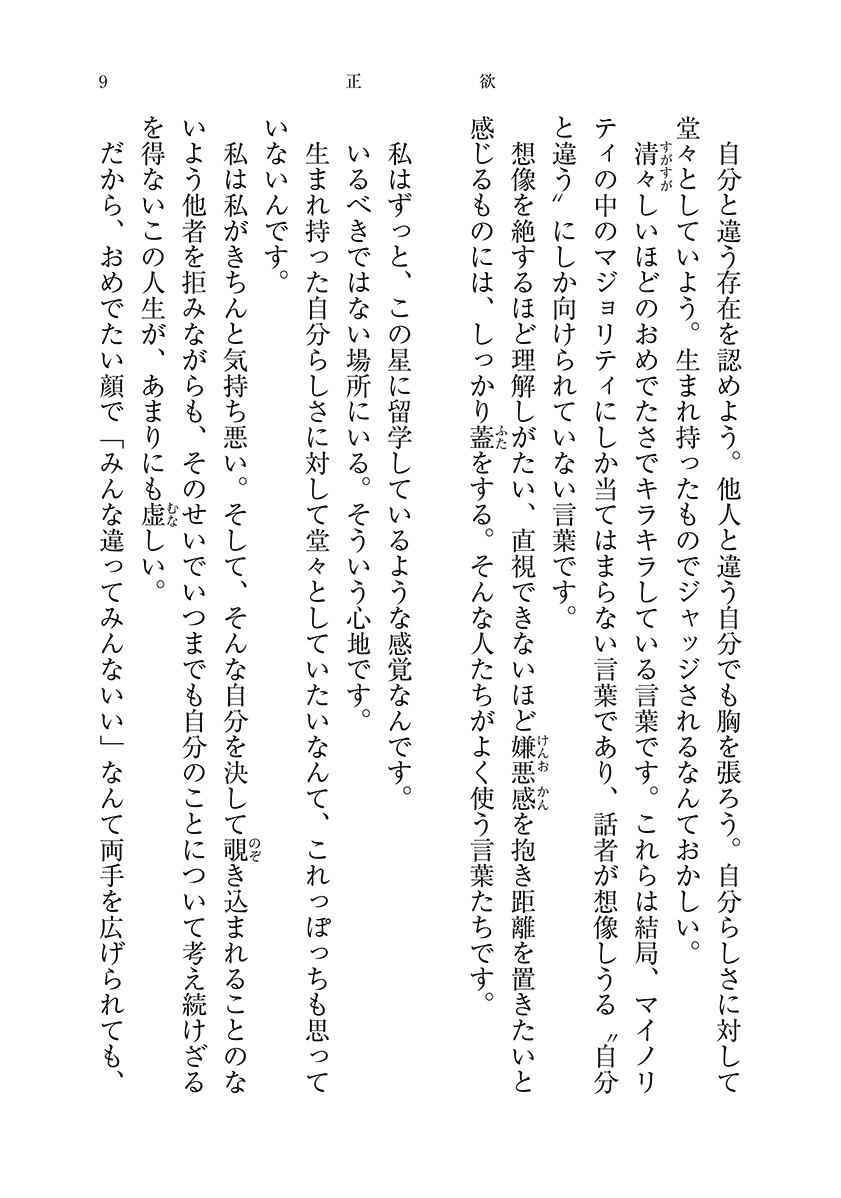 正欲
9
自分と違う存在を認めよう。他人と違う自分でも胸を張ろう。自分らしさに対して
堂々としていよう。生まれ持ったものでジャッジされるなんておかしい。
清々しいほどのおめでたさでキラキラしている言葉です。これらは結局、マイノリ
すがすが
ティの中のマジョリティにしか当てはまらない言葉であり、話者が想像しうる〝自分
と違う〟にしか向けられていない言葉です。
想像を絶するほど理解しがたい、直視できないほど嫌悪感を抱き距離を置きたいと
けんおかん
感じるものには、しっかり蓋をする。そんな人たちがよく使う言葉たちです。
ふた
私はずっと、この星に留学しているような感覚なんです。
いるべきではない場所にいる。そういう心地です。
生まれ持った自分らしさに対して堂々としていたいなんて、これっぽっちも思って
いないんです。
私は私がきちんと気持ち悪い。そして、そんな自分を決して覗き込まれることのな
のぞ
いよう他者を拒みながらも、そのせいでいつまでも自分のことについて考え続けざる
を得ないこの人生が、あまりにも虚しい。
むな
だから、おめでたい顔で「みんな違ってみんないい」なんて両手を広げられても、